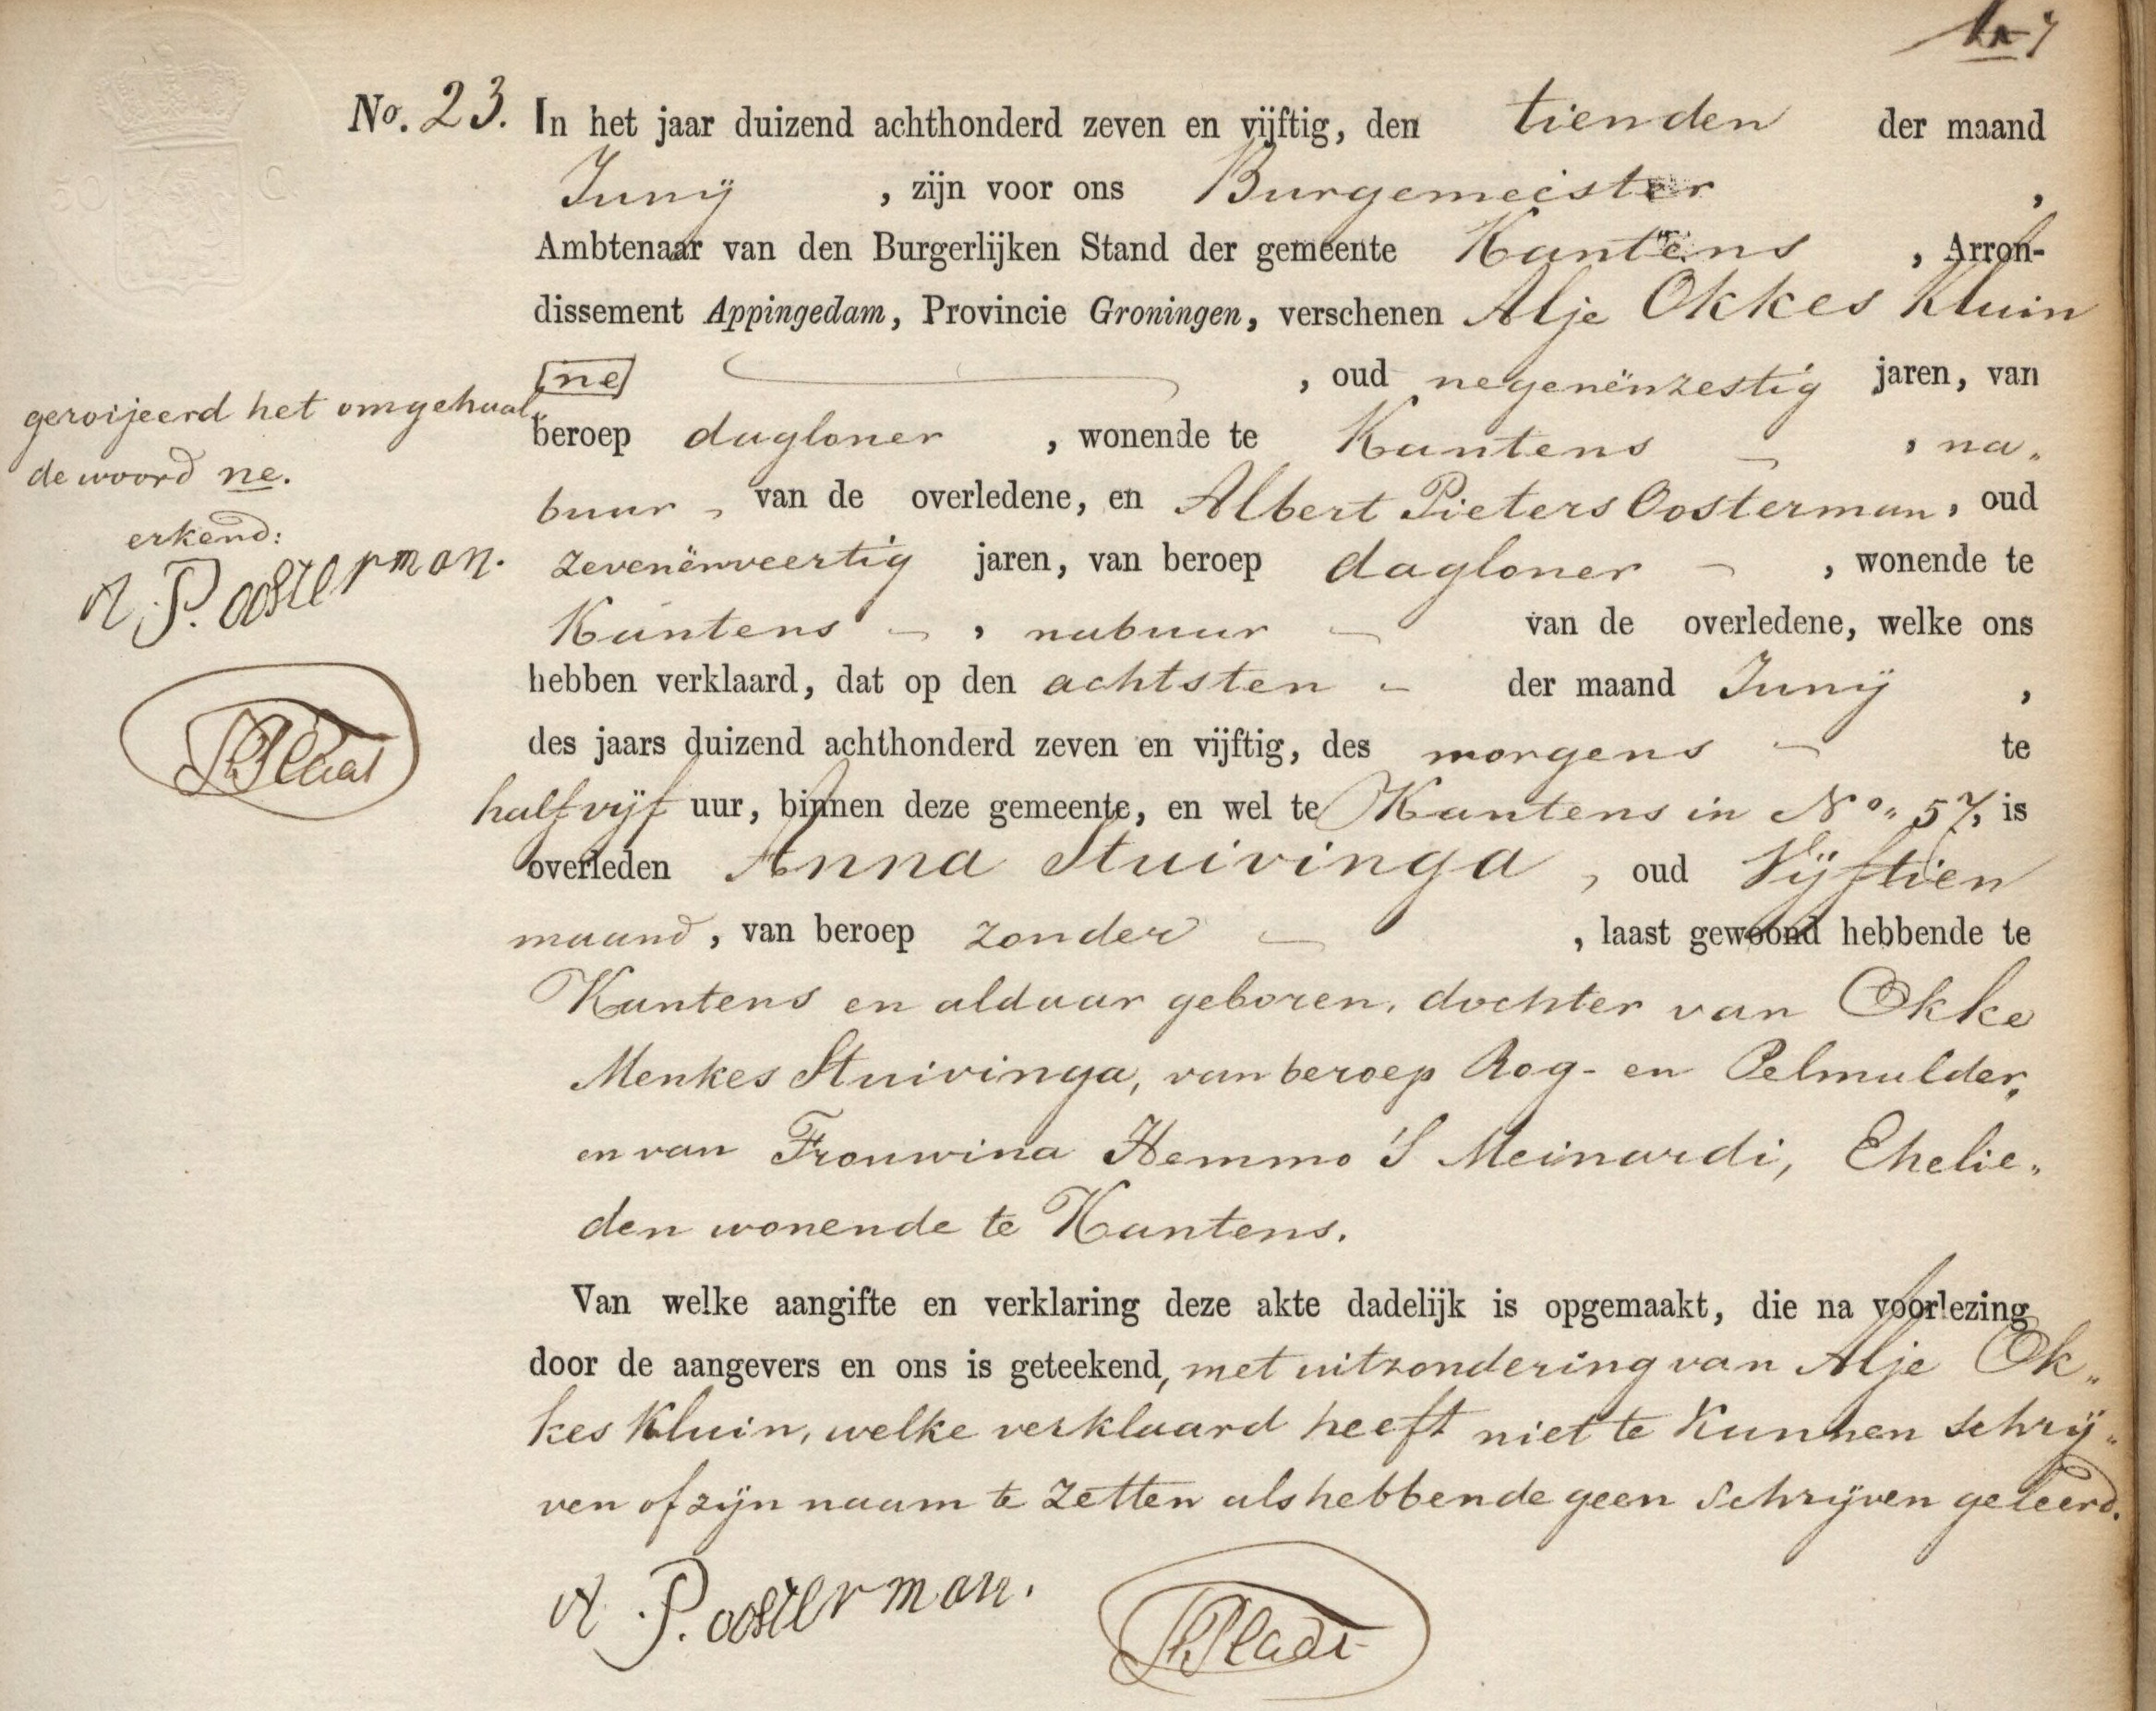 No. 23. In het jaar duizend achthonderd zeven en vijftig, den tienden der maand
Junij , zijn voor ons Burgemeester ,
Ambtenaar van den Burgerlijken Stand der gemeente Kantens , Arron-
dissement Appingedam, Provincie Groningen, verschenen Alje Okkes Kluin
[ne] , oud negenënzestig jaren, van
beroep dagloner , wonende te Kantens , na„
buur van de overledene, en Albert Pieters Oosterman, oud
zevenënveertig jaren, van beroep dagloner , wonende te
Kantens , nabuur van de overledene, welke ons
hebben verklaard, dat op den achtsten der maand Junij ,
des jaars duizend achthonderd zeven en vijftig, des morgens te
half vijf uur, binnen deze gemeente, en wel te Kantens in No„ 57, is
overleden Anna Stuivinga , oud Vijftien
maand, van beroep zonder , laast gewoond hebbende te
Kantens en aldaar geboren, dochter van Okke
Menkes Stuivinga, van beroep Rog- en Pelmulder,
en van Frouwina Hemmo's Meinardi, Ehelie„
den wonende te Kantens.
Van welke aangifte en verklaring deze akte dadelijk is opgemaakt, die na voorlezing
door de aangevers en ons is geteekend, met uitzondering van Alje Ok„
kes Kluin, welke verklaard heeft niet te kunnen schrij„
ven of zijn naam te zetten als hebbende geen schrijven geleerd.
A. P. oosterman.
geroijeerd het omgehaal„
de woord ne.
erkend:
A P. oosterman.
50 C